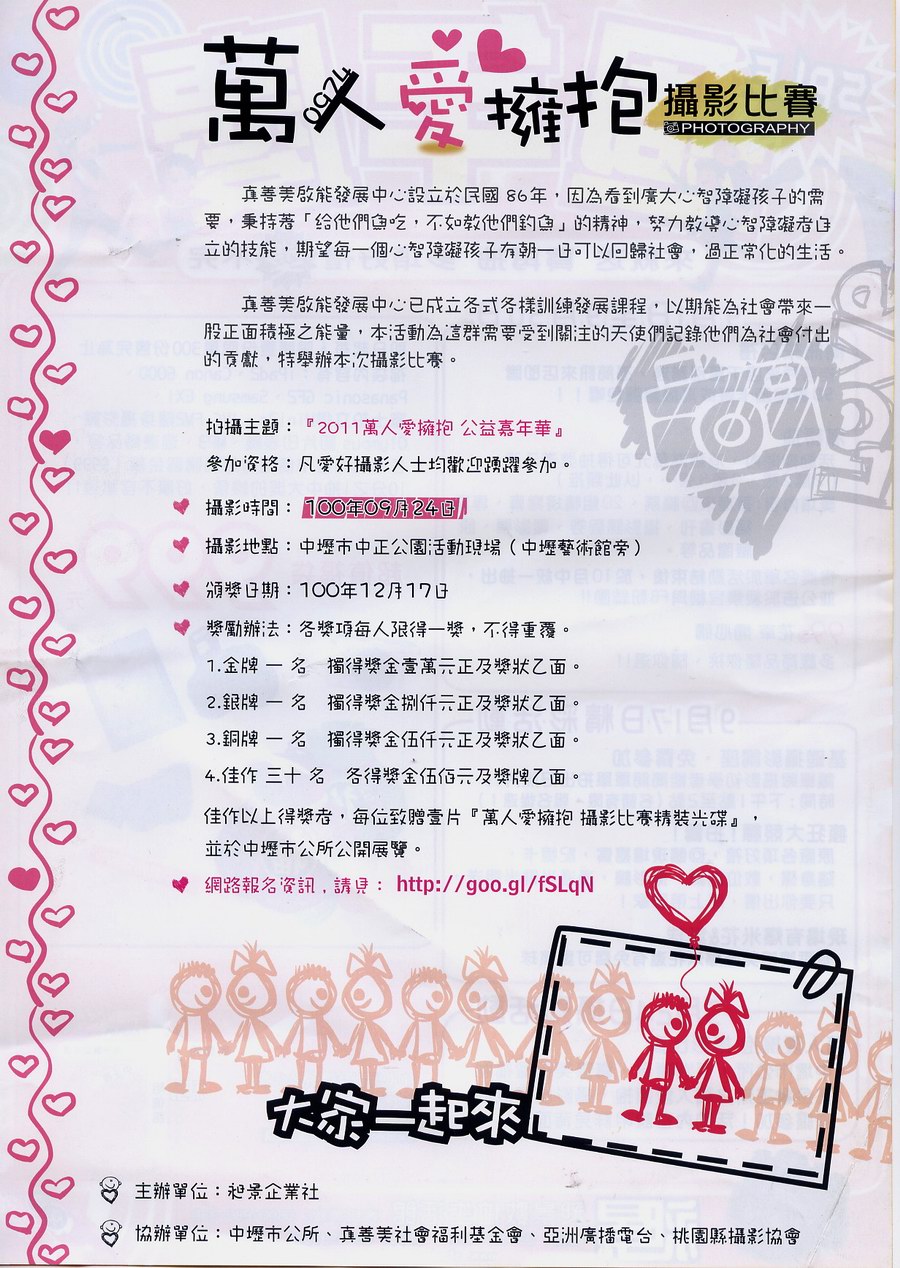 萬人愛擁抱 攝影比賽
0924
PHOTOGRAPHY
真善美啟能發展中心設立於民國 86年，因為看到廣大心智障礙孩子的需
要，秉持著「給他們魚吃，不如教他們釣魚」的精神，努力教導心智障礙者自
立的技能，期望每一個心智障礙孩子有朝一日可以回歸社會，過正常化的生活。
真善美啟能發展中心已成立各式各樣訓練發展課程，以期能為社會帶來一
股正面積極之能量，本活動為這群需要受到關注的天使們記錄他們為社會付出
的貢獻，特舉辦本次攝影比賽。
拍攝主題：『2011萬人愛擁抱 公益嘉年華』
參加資格：凡愛好攝影人士均歡迎踴躍參加。
攝影時間：100年09月24日
攝影地點：中壢市中正公園活動現場（中壢藝術館旁）
頒獎日期：100年12月17日
獎勵辦法：各獎項每人限得一獎，不得重覆。
1.金牌 一 名 獨得獎金壹萬元正及獎狀乙面。
2.銀牌 一 名 獨得獎金捌仟元正及獎狀乙面。
3.銅牌 一 名 獨得獎金伍仟元正及獎狀乙面。
4.佳作 三十 名 各得獎金伍佰元及獎牌乙面。
佳作以上得獎者，每位致贈壹片『萬人愛擁抱 攝影比賽精裝光碟』，
並於中壢市公所公開展覽。
網路報名資訊，請見： http://goo.gl/fSLqN
大家一起來
主辦單位：昶景企業社
協辦單位：中壢市公所、真善美社會福利基金會、亞洲廣播電台、桃園縣攝影協會